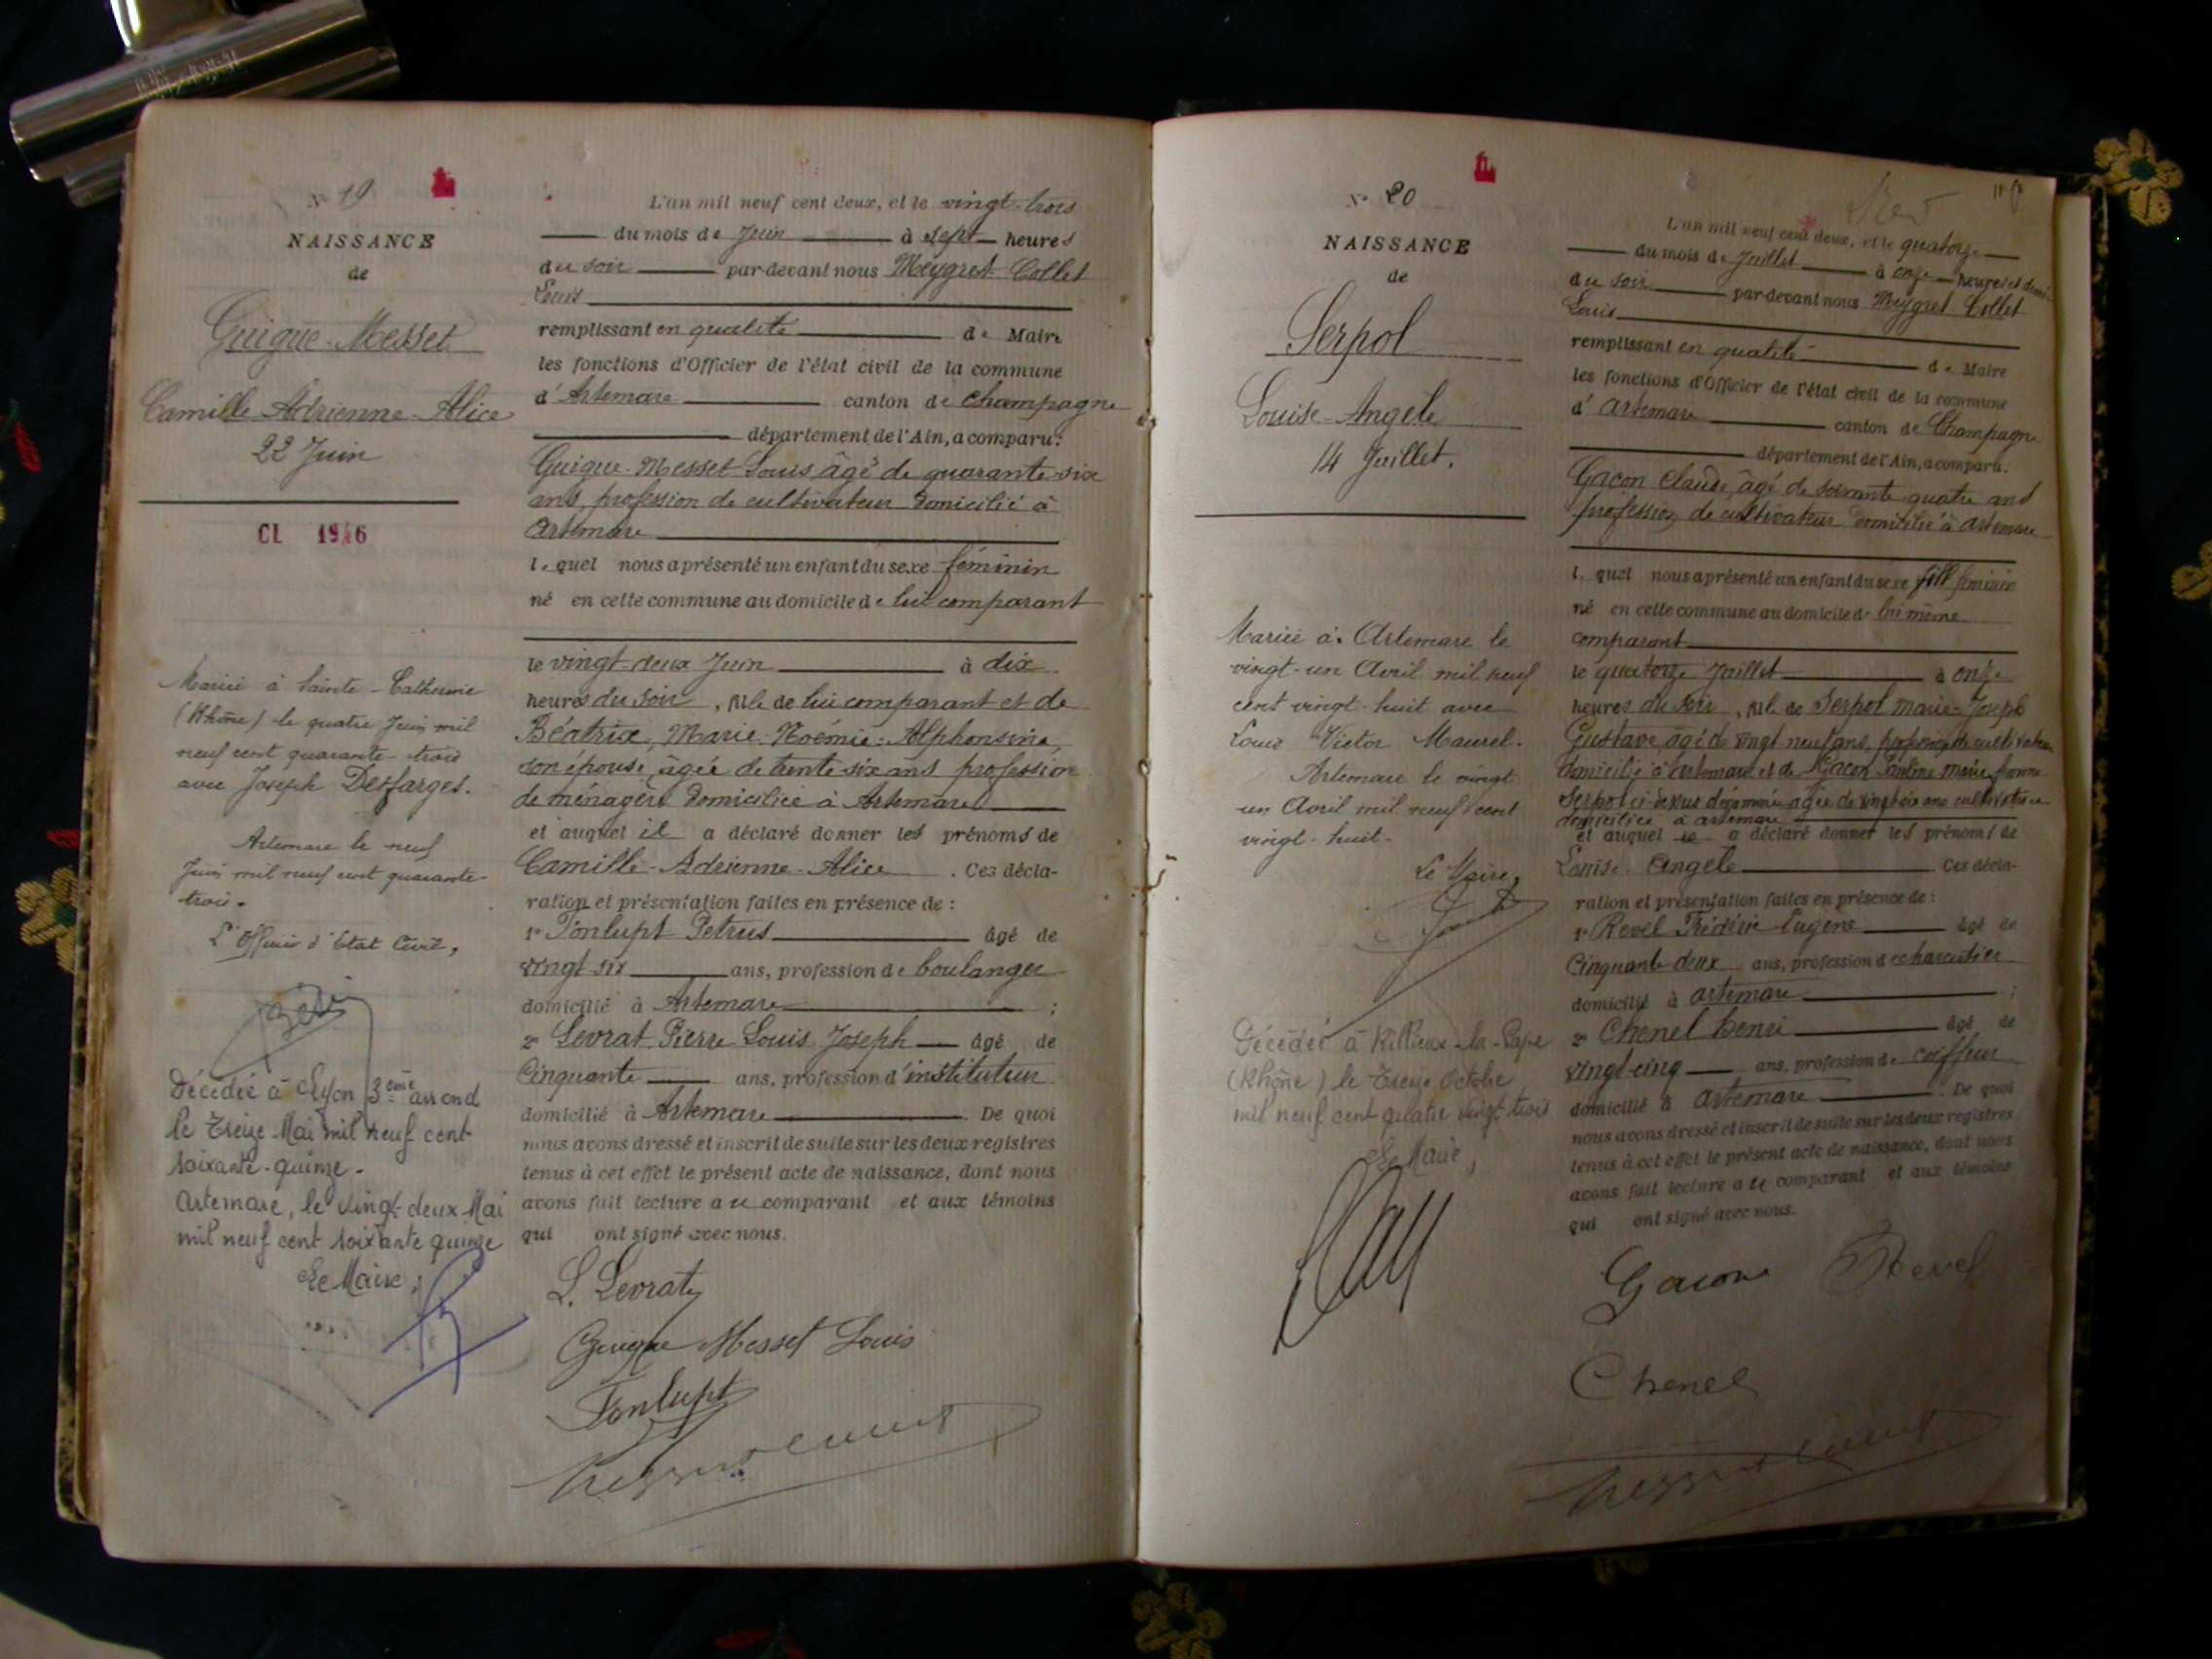 N° 19
NAISSANCE
de
Guigue-Messet
Camille-Adrienne-Alice
22 Juin
CL 1946
Mariée à Sainte-Catherine
(Rhône) le quatre Juin mil
neuf cent quarante-trois
avec Joseph Desfarges.
Artemare le neuf
Juin mil neuf cent quarante-
trois.
L'Officier d'Etat Civil,
Décédée à Lyon 3ème arrond
le Treize Mai mil neuf cent
soixante-quinze-
Artemare, le vingt-deux Mai
mil neuf cent soixante quinze
Le Maire,
L'an mil neuf cent deux, et le vingt-trois
du mois de Juin à sept heures
du soir par-devant nous Meygret-Collet
Louis
remplissant en qualité de Maire
les fonctions d'Officier de l'état civil de la commune
d'Artemare canton de Champagne
département de l'Ain, a comparu:
Guigue-Messet Louis âgé de quarante-six
ans, profession de cultivateur domicilié à
Artemare
lequel nous a présenté un enfant du sexe féminin
né en cette commune au domicile de lui comparant
le vingt-deux Juin à dix
heures du soir, fille de lui comparant et de
Béatrix, Marie-Noémie-Alphonsine,
son épouse, âgée de trente-six ans profession
de ménagère domiciliée à Artemare
et auquel il a déclaré donner les prénoms de
Camille-Adrienne-Alice. Ces décla-
ration et présentation faites en présence de :
1° Tonlupt Petrus âgé de
vingt-six ans, profession de boulanger
domicilié à Artemare ;
2° Levrat Pierre Louis Joseph âgé de
Cinquante ans, profession d'instituteur
domicilié à Artemare. De quoi
nous avons dressé et inscrit de suite sur les deux registres
tenus à cet effet le présent acte de naissance, dont nous
avons fait lecture au comparant et aux témoins
qui ont signé avec nous.
L. Levrat
Guigue Messet Louis
Tonlupt
N° 20
NAISSANCE
de
Serpol
Louise-Angele
14 Juillet.
Mariée à Artemare le
vingt-un Avril mil neuf
cent vingt-huit avec
Louis Victor Maurel.
Artemare le vingt
un Avril mil neuf cent
vingt-huit-
Le Maire,
Décédée à Rillieux-la-Pape
(Rhône) le Treize Octobre
mil neuf cent quatre vingt trois
Le Maire,
L'an mil neuf cent deux, et le quatorze
du mois de Juillet à onze heures et demie
du soir par-devant nous Meygret Collet
Louis
remplissant en qualité de Maire
les fonctions d'Officier de l'état civil de la commune
d'Artemare canton de Champagne
département de l'Ain, a comparu:
Gacon Claude, âgé de soixante-quatre ans
profession de cultivateur domicilié à Artemare
lequel nous a présenté un enfant du sexe féminin
né en cette commune au domicile de lui même
comparant
le quatorze Juillet à onze
heures du soir, fille de Serpol Marie-Joseph
Gustave, âgé de vingt neuf ans, profession de cultivateur
domicilié à Artemare et de Gacon Pauline Marie, femme
Serpol ci-dessus dénommé âgée de vingt six ans cultivatrice
domiciliée à Artemare
et auquel il a déclaré donner les prénoms de
Louise-Angele Ces décla-
ration et présentation faites en présence de :
1° Revel Frédéric Eugène âgé de
Cinquante deux ans, profession de charcutier
domicilié à Artemare ;
2° Chenel Henri âgé de
vingt-cinq ans, profession de coiffeur
domicilié à Artemare. De quoi
nous avons dressé et inscrit de suite sur les deux registres
tenus à cet effet le présent acte de naissance, dont nous
avons fait lecture au comparant et aux témoins
qui ont signé avec nous.
Gacon Revel
Chenel